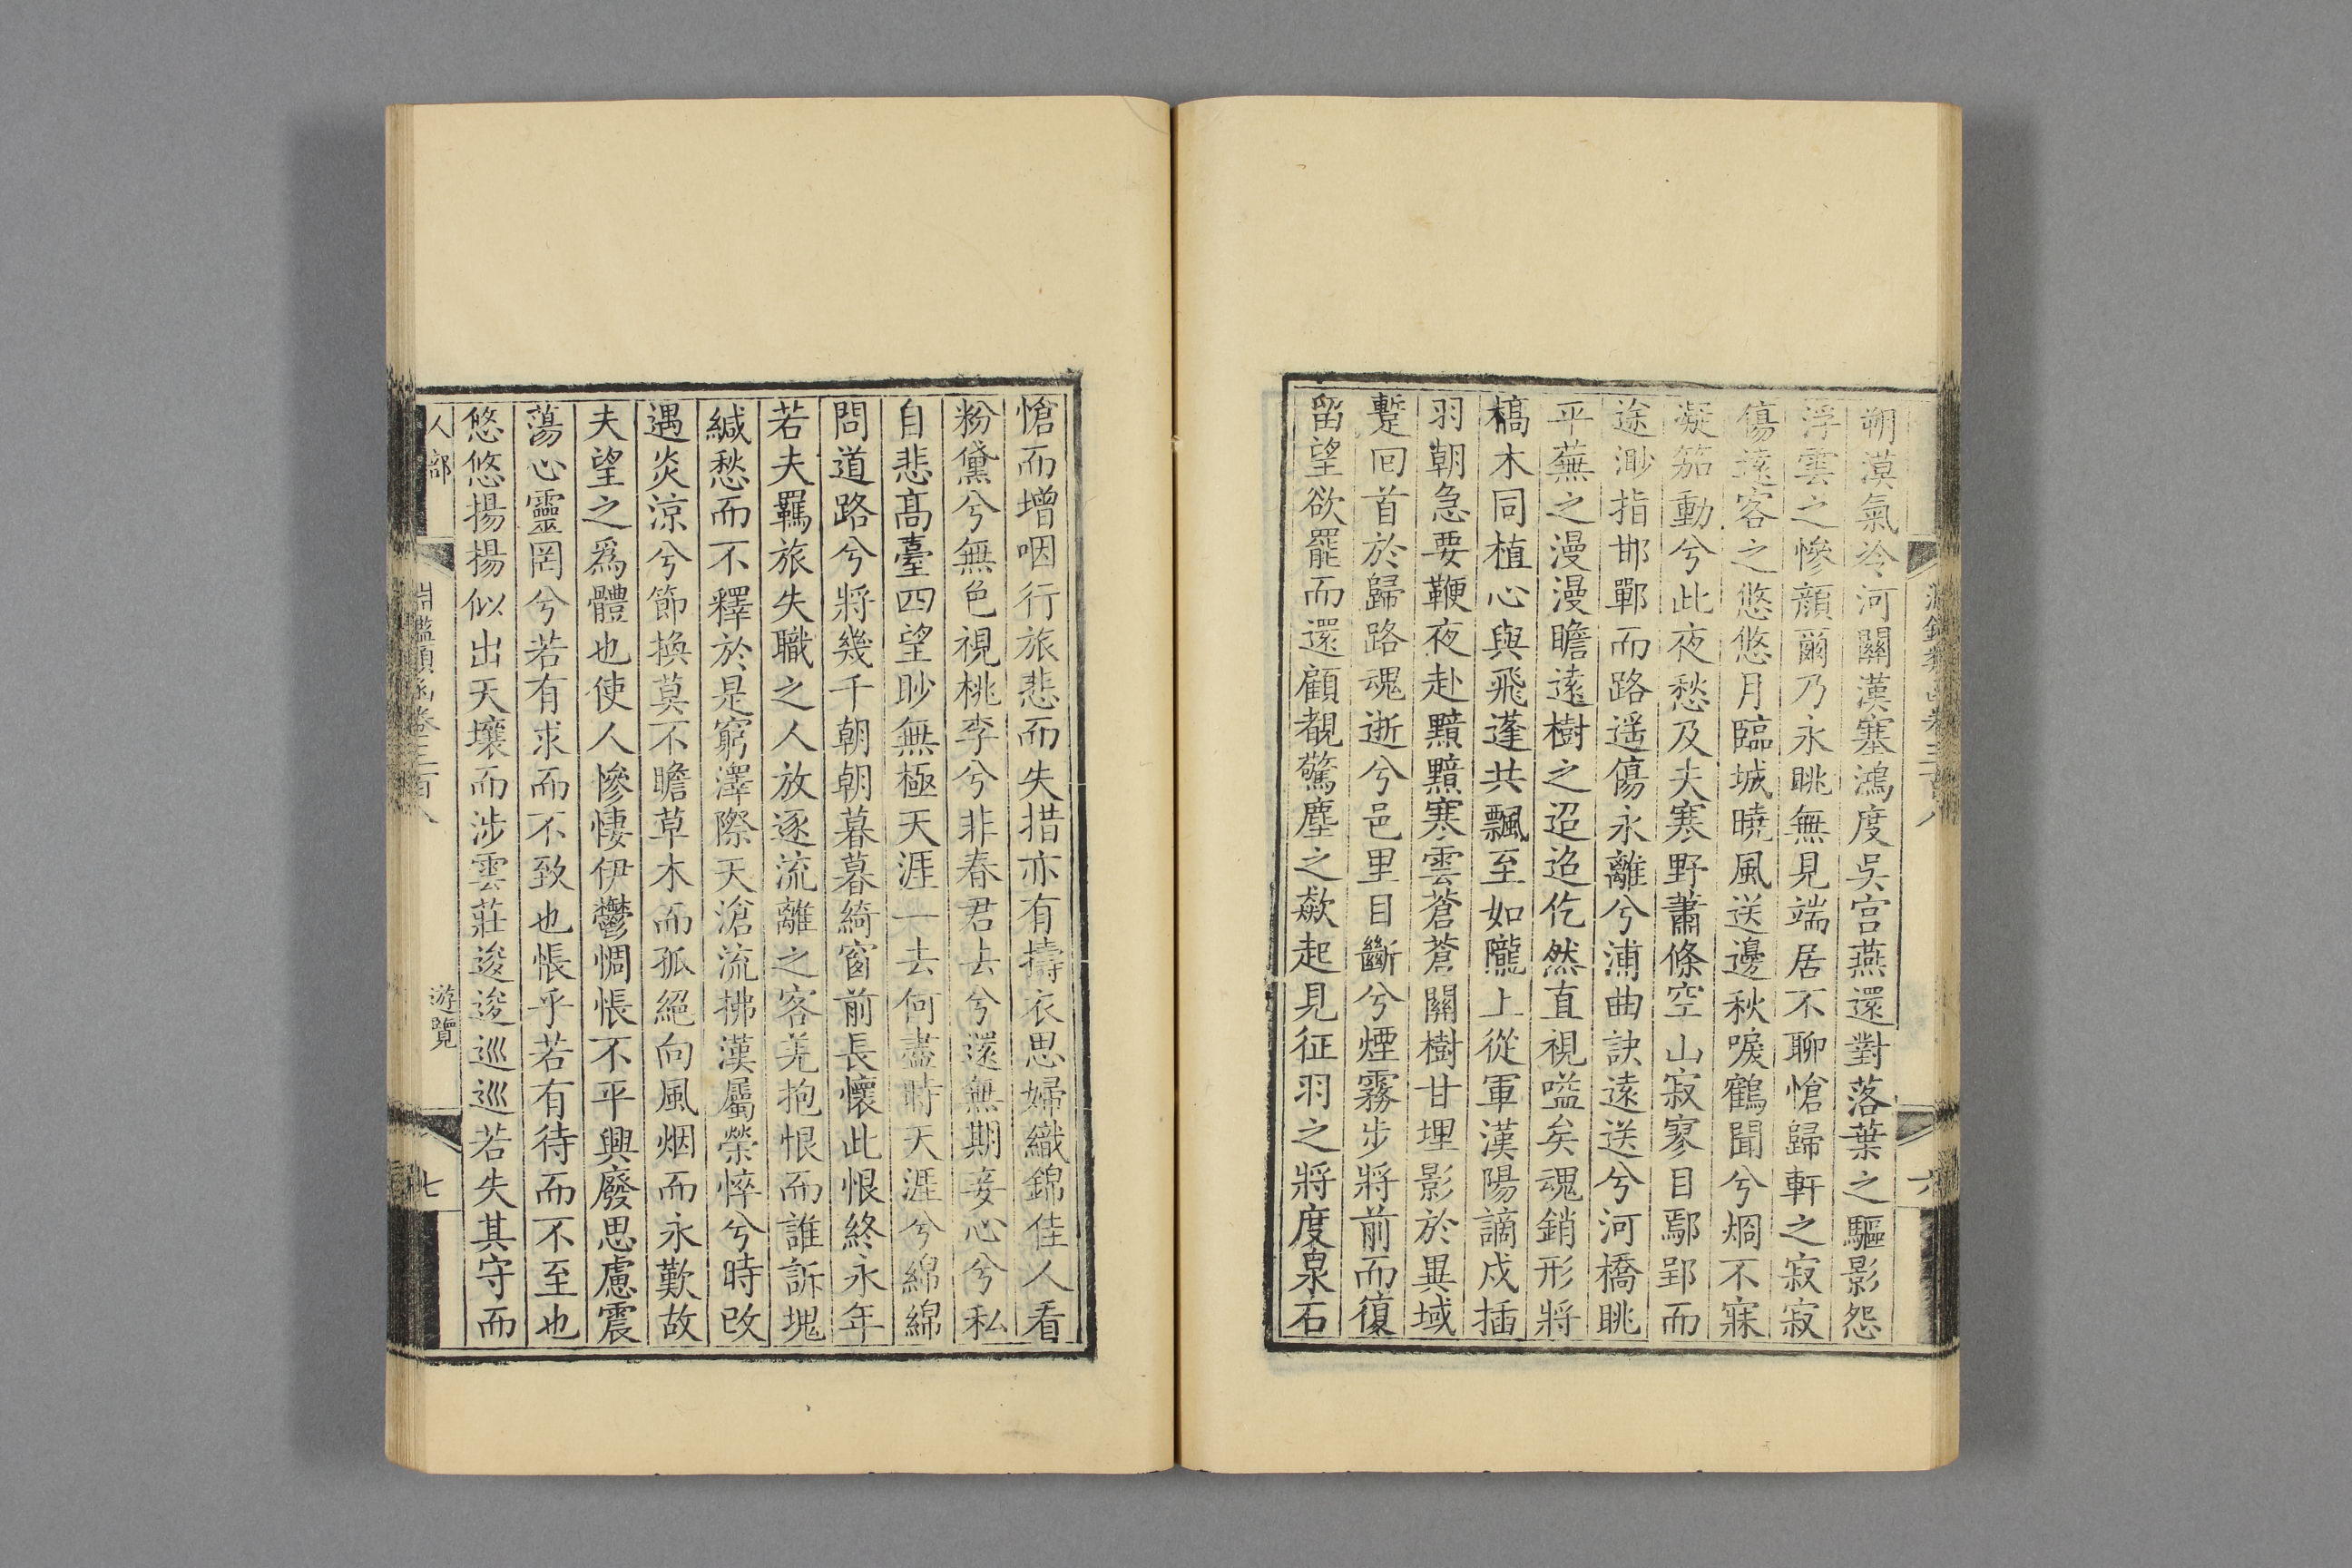 朔漠氣冷河關漢塞鴻度吳宮燕還對落葉之驅影怨
浮雲之慘顏爾乃永眺無見端居不聊愴歸軒之寂寂
傷遠客之悠悠月臨城曉風送邊秋唳鶴聞兮烱不寐
凝笳動兮此夜愁及夫寒野蕭條空山寂寥目鄢郢而
途渺指邯鄲而路遥傷永離兮浦曲訣遠送兮河橋眺
平蕪之漫漫瞻遠樹之迢迢仡然直視嗌矣魂銷形將
槁木同植心與飛蓬共飄至如隴上從軍漢陽謫戍插
羽朝急要鞭夜赴黯黯寒雲蒼蒼關樹甘埋影於異域
蹔回首於歸路魂逝兮邑里目斷兮煙霧步將前而復
留望欲罷而還顧覩驚塵之歘起見征羽之將度泉石
六
愴而增咽行旅悲而失措亦有擣衣思婦織錦佳人看
粉黛兮無色視桃李兮非春君去兮還無期妾心兮私
自悲高臺四望眇無極天涯一去何盡時天涯兮綿綿
問道路兮將幾千朝朝暮暮綺窗前長懷此恨終永年
若夫羈旅失職之人放逐流離之客羌抱恨而誰訴塊
緘愁而不釋於是窮澤際天滄流拂漢屬榮悴兮時改
遇炎涼兮節換莫不瞻草木而孤絕向風烟而永歎故
夫望之爲體也使人慘悽伊鬱惆悵不平興廢思慮震
蕩心靈罔兮若有求而不致也悵乎若有待而不至也
悠悠揚揚似出天壤而涉雲莊逡逡巡巡若失其守而
人部
淵鑑類函卷三百八
遊覽
七